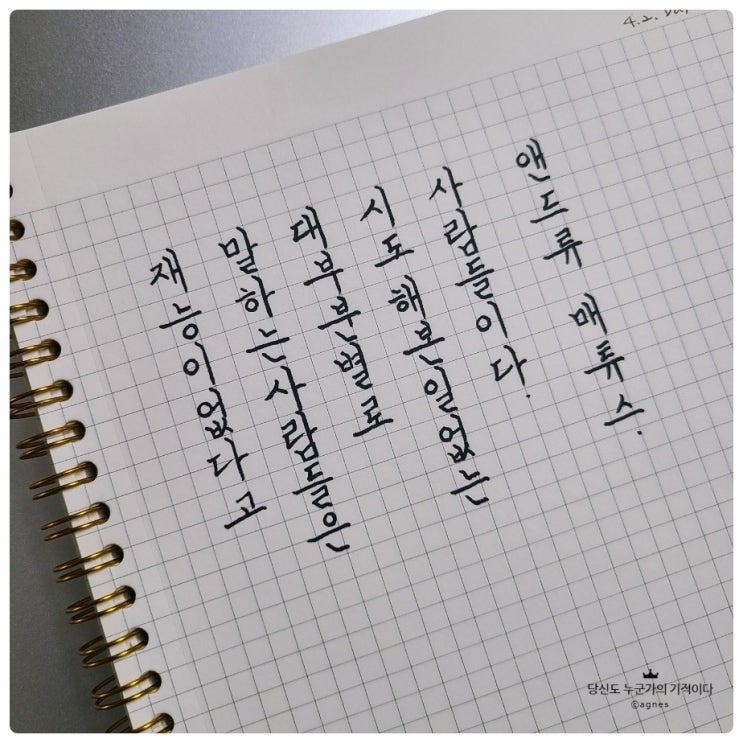 4.2.
재능이없다고
말하는사람들은
대부분별로
시도 해본일없는
사람들이다.
앤드류 매튜스.
당신도 누군가의 기적이다
©agnes